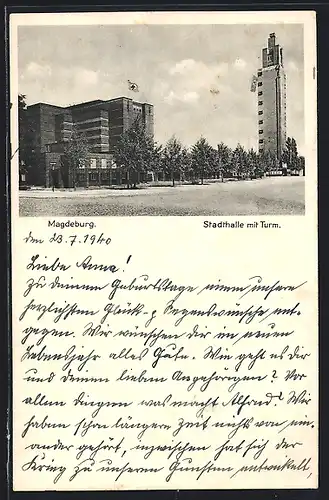 Magdeburg. Stadthalle mit Turm.
den 23.7.1940
Liebe Anna!
Zu deinem Geburtstage nimm unsere
herzlichsten Glück- & Segenswünsche ent-
gegen. Wir wünschen dir im neuen
Lebensjahr alles Gute. Wie geht es dir
und deinen lieben Angehörigen? Vor
allen Dingen was macht Alfred? Wir
haben schon längere Zeit nichts von ein-
ander gehört, inzwischen hat sich der
Krieg zu unseren Gunsten entwickelt,